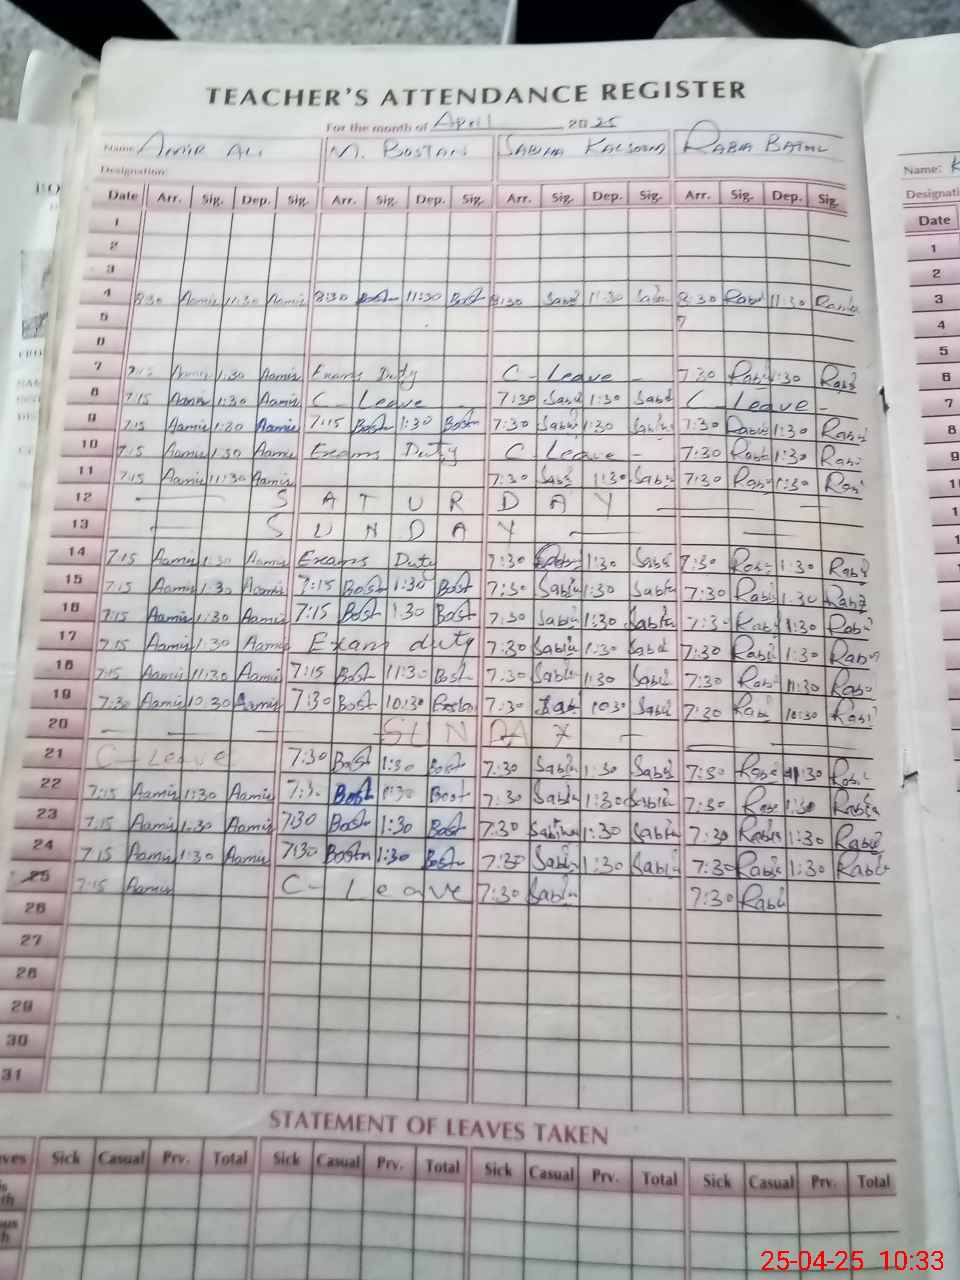 TEACHER'S ATTENDANCE REGISTER
For the month of April 2025
Name AMIR ALI M. BOSTAN SABIHA KALSOOM RABIA BATUL
Designation
Date Arr. Sig. Dep. Sig. Arr. Sig. Dep. Sig. Arr. Sig. Dep. Sig. Arr. Sig. Dep. Sig.
1
2
3
4 8:30 Aamir 11:30 Aamir 8:30 Bost 11:30 Bost 8:30 Sabi 11:30 Sabi 8:30 Rabi 11:30
5 7
6
7 7:15 Aamir 1:30 Aamir Exams Duty C - Leave - 7:30 Rabi 1:30 Rabi
8 7:15 Aamir 1:30 Aamir C - Leave - 7:30 Sabi 1:30 Sabi C - Leave -
9 7:15 Aamir 1:30 Aamir 7:15 Bost 1:30 Bost 7:30 Sabi 1:30 Sabi 7:30 Rabi 1:30 Rabi
10 7:15 Aamir 1:30 Aamir Exams Duty C - Leave - 7:30 Rabi 1:30 Rabi
11 7:15 Aamir 11:30 Aamir 7:30 Sabi 11:30 Sabi 7:30 Rabi 11:30 Rabi
12 SATURDAY
13 SUNDAY
14 7:15 Aamir 1:30 Aamir Exams Duty 7:30 1:30 Sabi 7:30 Rabi 1:30 Rabi
15 7:15 Aamir 1:30 Aamir 7:15 Bost 1:30 Bost 7:30 Sabi 1:30 Sabi 7:30 Rabi 1:30 Rabi
16 7:15 Aamir 1:30 Aamir 7:15 Bost 1:30 Bost 7:30 Sabi 1:30 Sabi 7:30 Rabi 1:30 Rabi
17 7:15 Aamir 1:30 Aamir Exam duty 7:30 Sabi 1:30 Sabi 7:30 Rabi 1:30 Rabi
18 7:15 Aamir 11:30 Aamir 7:15 Bost 11:30 Bost 7:30 Sabi 11:30 Sabi 7:30 Rabi 11:30 Rabi
19 7:30 Aamir 10:30 Aamir 7:30 Bost 10:30 Bostan 7:30 Sabi 10:30 Sabi 7:30 Rabi 10:30 Rabi
20 SUNDAY
21 C - Leave 7:30 Bost 1:30 Bost 7:30 Sabi 1:30 Sabi 7:30 Rabi 1:30 Rabi
22 7:15 Aamir 1:30 Aamir 7:30 Bost 1:30 Bost 7:30 Sabi 1:30 Sabi 7:30 Rabi 1:30 Rabia
23 7:15 Aamir 1:30 Aamir 7:30 Bost 1:30 Bost 7:30 Sabiha 1:30 Sabi 7:30 Rabia 1:30 Rabi
24 7:15 Aamir 1:30 Aamir 7:30 Bostn 1:30 Bost 7:30 Sabi 1:30 Sabi 7:30 Rabi 1:30 Rabi
25 7:15 Aamir C - Leave 7:30 Sabi 7:30 Rabi
26
27
28
29
30
31
STATEMENT OF LEAVES TAKEN
Sick Casual Prv. Total Sick Casual Prv. Total Sick Casual Prv. Total Sick Casual Prv. Total
Name:
Date
1
2
3
4
5
6
7
8
9
25-04-25 10:33